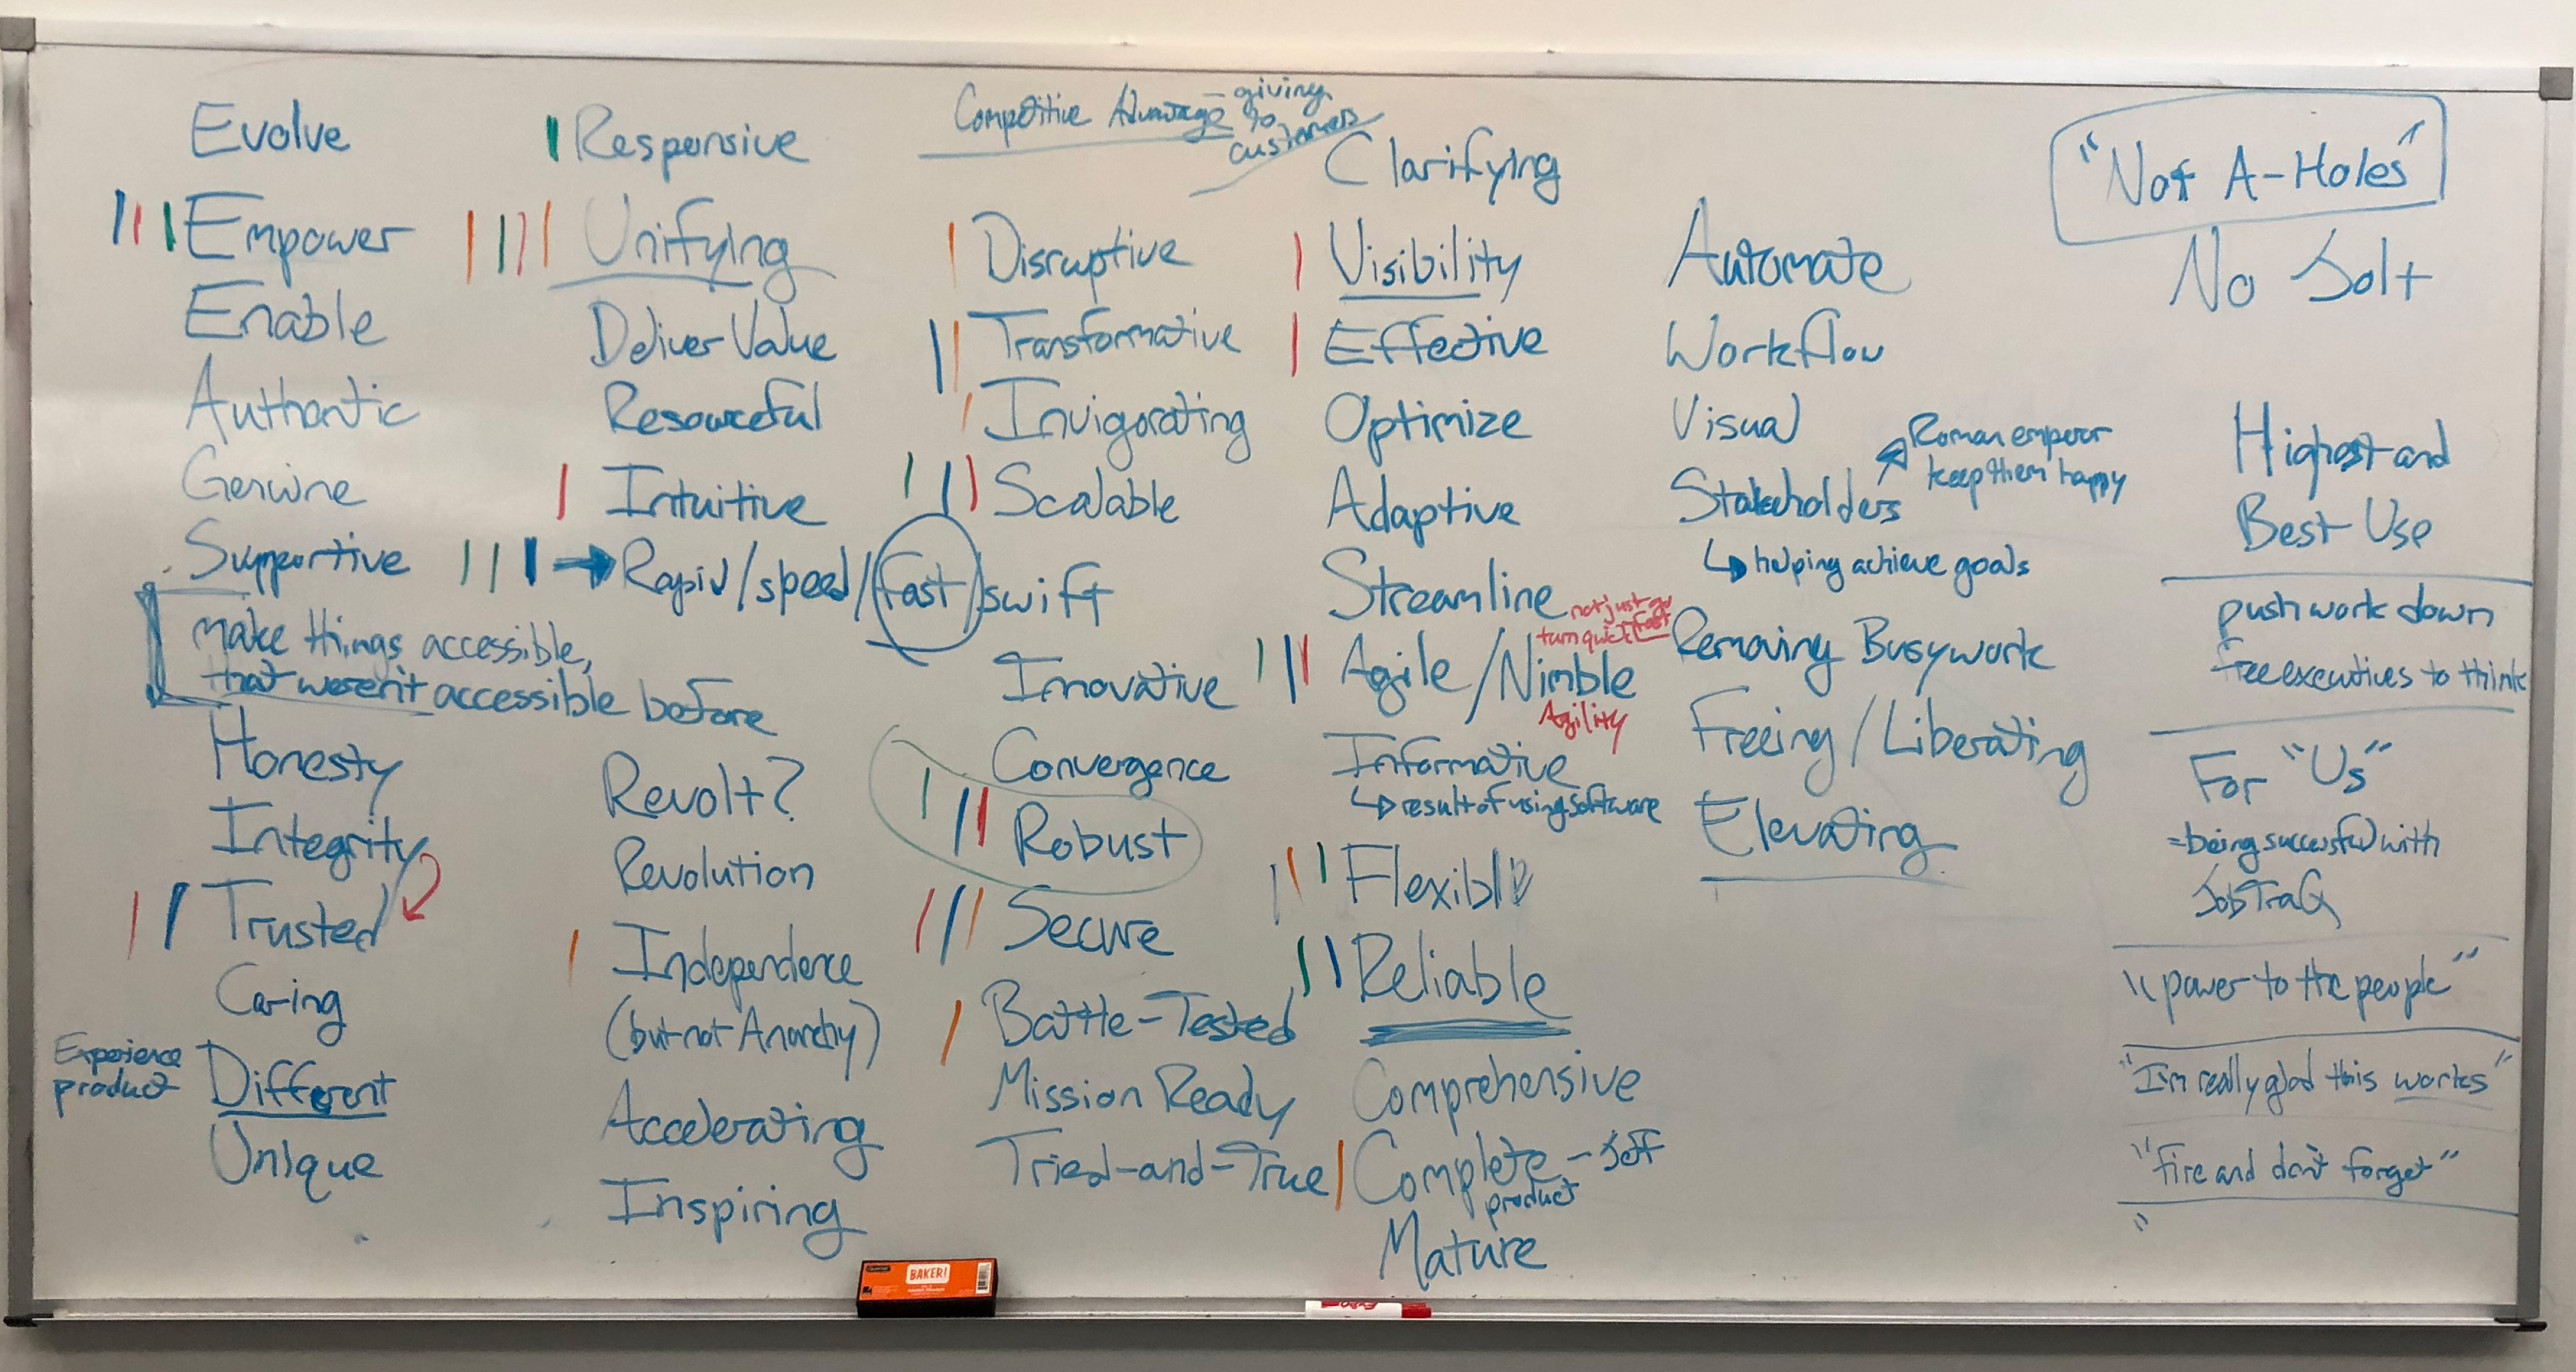 Evolve
Empower
Enable
Authentic
Genuine
Supportive
make things accessible,
that weren't accessible before
Honesty
Integrity
Trusted
Caring
Experience
product
Different
Unique
Responsive
Unifying
Deliver Value
Resourceful
Intuitive
Rapid/speed/fast/swift
Revolt?
Revolution
Independence
(but not Anarchy)
Accelerating
Inspiring
Competitive Advantage - giving
to
customers
Disruptive
Transformative
Invigorating
Scalable
Innovative
Convergence
Robust
Secure
Battle-Tested
Mission Ready
Tried-and-True
Clarifying
Visibility
Effective
Optimize
Adaptive
Streamline
not just go
fast
turn quick
Agile/Nimble
Agility
Informative
result of using software
Flexibl
Reliable
Comprehensive
Complete - Jeff
product
Mature
Automate
Workflow
Visual
Roman emperor
keep them happy
Stakeholders
helping achieve goals
Removing Busywork
Freeing/Liberating
Elevating
"Not A-Holes"
No Jolt
Highest and
Best Use
push work down
free executives to think
For "Us"
=being successful with
JobTraQ
"power to the people"
"I'm really glad this works"
"fire and don't forget"
"
BAKER!